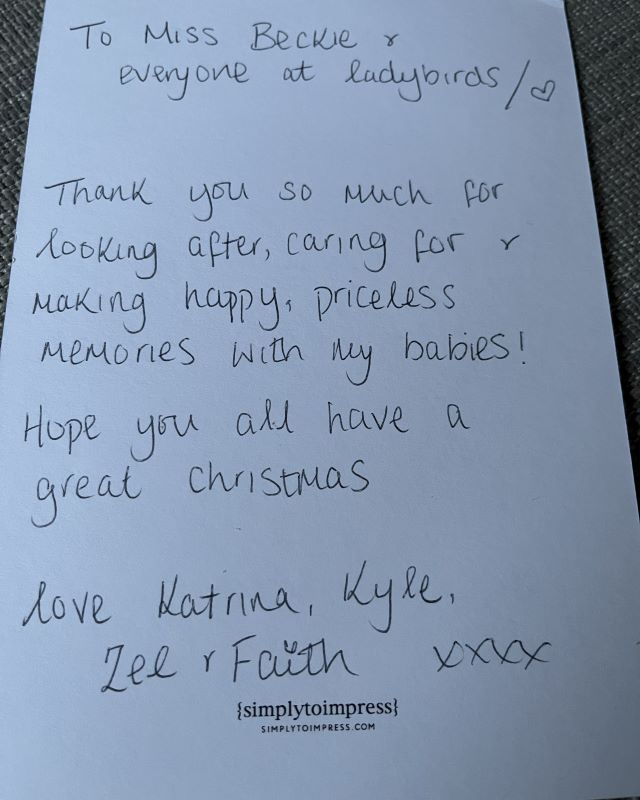 To Miss Beckie &
everyone at ladybirds/♡
Thank you so much for
looking after, caring for &
making happy, priceless
memories with my babies!
Hope you all have a
great christmas
love Katrina, Kyle,
Zel & Faith xxxx
{simplytoimpress}
SIMPLYTOIMPRESS.COM